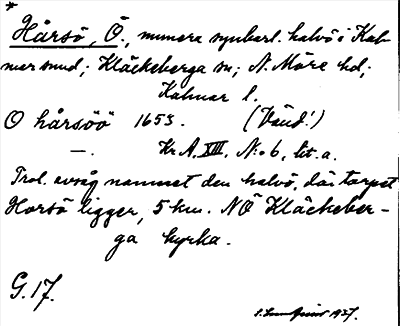 *
Hårsö, Ö., numera synbarl. halvö i Kal-
mar sund; Kläckeberga sn; N. Möre hd;
Kalmar l.
O hårsöö 1653. (Vänd!)
—. Kr. A. XIII. N:o 6, lit. a.
Trol. avsåg namnet den halvö, där torpet
Horsö ligger, 5 km. NÖ Kläckeber-
ga kyrka.
G. 17.
1927.